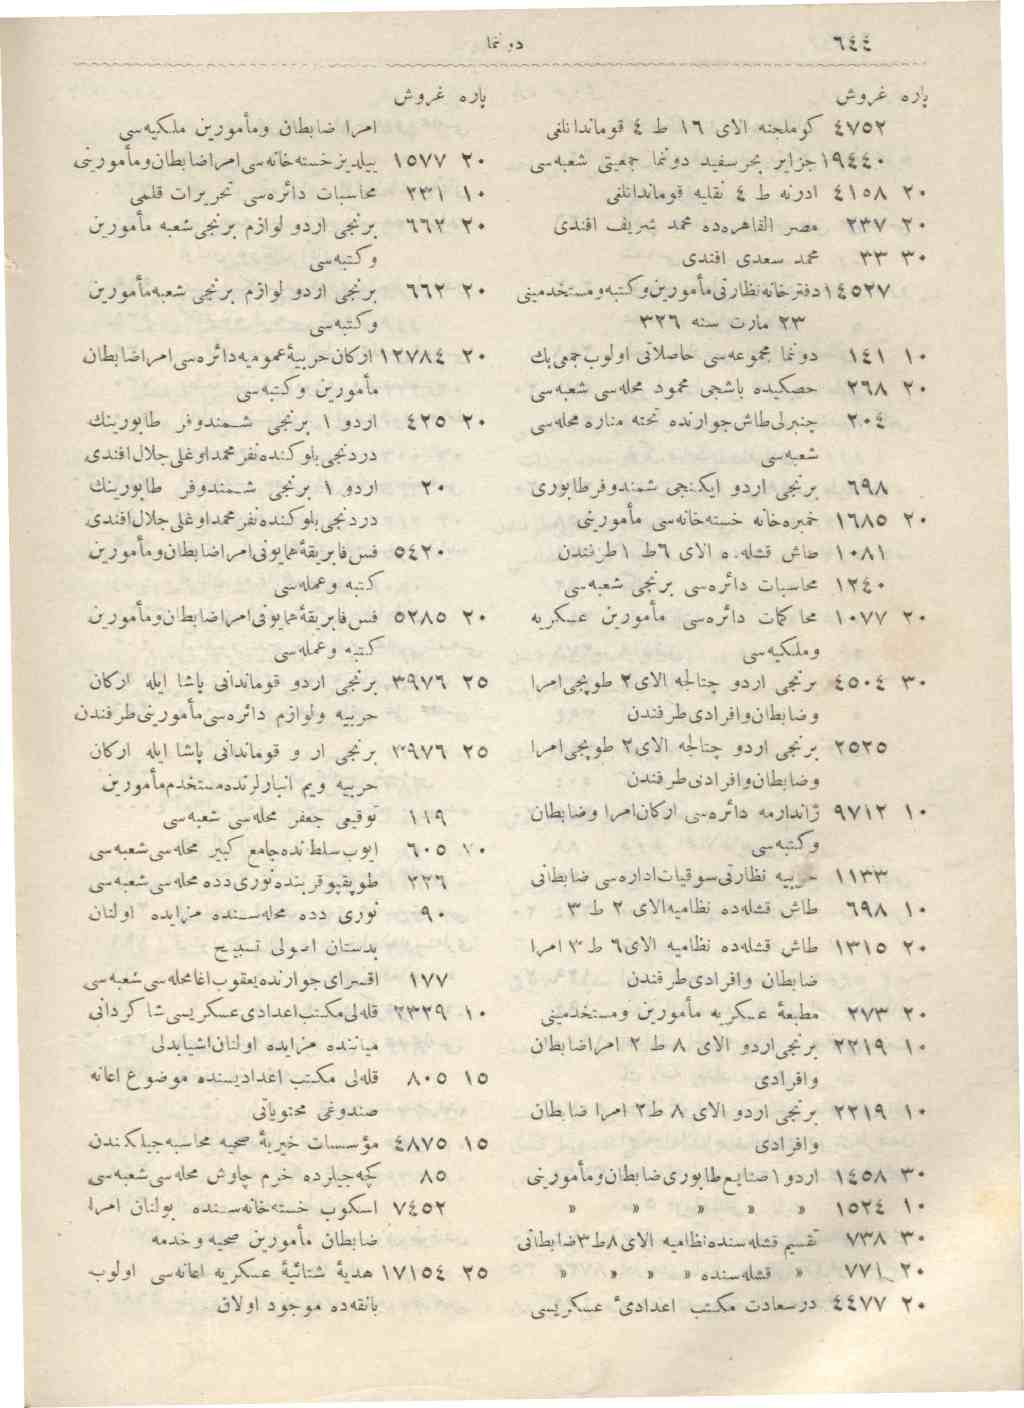 ٦٤٤
دونما
پاره غروش
٤٧٥٢ كوملجنه الای ١٦ ط ٤ قوماندانلغی
١٩٤٤٠ جزایر بحر سفید دونما جمعیتی شعبه‌سی
٢٠ ٤١٥٨ ادرنه ط ٤ نقلیه قومانداناغی
٢٠ ٢٣٧ مصر القاهره‌ده محمد شریف افندی
٣٠ ٣٣ محمد سعدی افندی
١٤٥٢٧ دفترخانه‌نظارتی‌مأمورین‌وكتبه‌ومستخدمینی
٢٣ مارت سنه ٣٢٦
١٠ ١٤١ دونما مجموعه‌سی حاصلاتی اولوب‌جمعی‌بك
٢٠ ٢٦٨ حصكیده باشجی محمود محله‌سی شعبه‌سی
٢٠٤ چنبرلی‌طاش‌جوارنده تحته مناره محله‌سی
شعبه‌سی
٦٩٨ برنجی اردو ایكنجی شمندوفرطابوری
٢٠ ١٦٨٥ خمبره‌خانه خسته‌خانه‌سی مأمورینی
١٠٨١ طاش قشله‌ده الای ٦ط ١طرفندن
١٢٤٠ محاسبات دائره‌سی برنجی شعبه‌سی
٢٠ ١٠٧٧ محاكمات دائره‌سی مأمورین عسكریه
وملكیه‌سی
٣٠ ٤٥٠٤ برنجی اردو چتالجه الای٢ طوپجی‌امرا
وضابطان‌وافرادی‌طرفندن
٢٥٢٥ برنجی اردو چتالجه الای٢ طوپجی‌امرا
وضابطان‌وافرادی‌طرفندن
١٠ ٩٧١٢ ژاندارمه دائره‌سی اركان‌امرا وضابطان
وكتبه‌سی
١١٣٣ حربیه نظارتی‌سوقیات‌اداره‌سی ضابطانی
١٠ ٦٩٨ طاش قشله‌ده نظامیه‌الای ٢ ط ٣
٢٠ ١٣١٥ طاش قشله‌ده نظامیه الای٦ ط ٣ امرا
ضابطان وافرادی‌طرفندن
٢٠ ٢٧٣ مطبعهٔ عسكریه مأمورین ومستخدمینی
١٠ ٢٢١٩ برنجی‌اردو الای ٨ ط ٢ امراضابطان
وافرادی
١٠ ٢٢١٩ برنجی اردو الای ٨ ط٢ امرا ضابطان
وافرادی
٣٠ ١٤٥٨ اردو ١صنایع‌طابوری‌ضابطان‌ومأمورینی
١٠ ١٥٢٤ » » » » »
٣٠ ٧٣٨ تقسیم قشله‌سنده‌نظامیه الای٨ط٣ضابطانی
٢٠ ٧٧١ » قشله‌سنده » » » »
٢٠ ٤٤٧٧ درسعادت مكتب اعدادیٔ عسكریسی
پاره غروش
امرا ضابطان ومأمورین ملكیه‌سی
٢٠ ١٥٧٧ ییلدیزخسته‌خانه‌سی‌امراضابطان‌ومأمورینی
١٠ ٢٣١ محاسبات دائره‌سی تحریرات قلمی
٢٠ ٦٦٢ برنجی اردو لوازم برنجی‌شعبه مأمورین
وكتبه‌سی
٢٠ ٦٦٢ برنجی اردو لوازم برنجی شعبه‌مأمورین
وكتبه‌سی
٢٠ ١٢٧٨٤ اركان‌حربیهٔ‌عمومیه‌دائره‌سی‌امراضابطان
مأمورین وكتبه‌سی
٢٠ ٤٢٥ اردو ١ برنجی شمندوفر طابورینك
دردنجی‌بلوكنده‌نفرمحمداوغلی‌جلال‌افندی
٢٠ اردو ١ برنجی شمندوفر طابورینك
دردنجی‌بلوكنده‌نفرمحمداوغلی‌جلال‌افندی
٥٤٢٠ فس‌فابریقهٔ‌همایونی‌امراضابطان‌ومأمورین
كتبه وعمله‌سی
٢٠ ٥٢٨٥ فس‌فابریقهٔ‌همایونی‌امراضابطان‌ومأمورین
كتبه وعمله‌سی
٢٥ ٣٩٧٦ برنجی اردو قوماندانی پاشا ایله اركان
حربیه ولوازم دائره‌سی‌مأمورینی‌طرفندن
٢٥ ٣٩٧٦ برنجی ار و قوماندانی پاشا ایله اركان
حربیه ویم انبارلرنده‌مستخدم‌مأمورین
١١٩ توقیعی جعفر محله‌سی شعبه‌سی
٦٠٥ ایوب‌سلطانده‌جامع كبیر محله‌سی‌شعبه‌سی
٢٢٦ طوپقپوقربنده‌نوری‌دده محله‌سی‌شعبه‌سی
٩٠ نوری دده محله‌سنده مزایده اولنان
بدستان اصولی تسبیح
١٧٧ اقسرای‌جوارنده‌یعقوب‌اغامحله‌سی‌شعبه‌سی
١٠ ٢٣٢٩ قله‌لی‌مكتب‌اعدادی‌عسكریسی‌شاكردانی
میاننده مزایده اولنان‌اشیابدلی
١٥ ٨٠٥ قله‌لی مكتب اعدادیسنده موضوع اعانه
صندوغی محتویاتی
١٥ ٤٨٧٥ مؤسسات خیریهٔ صحیه محاسبه‌جیلكندن
٨٥ كچه‌جیلرده خرم چاوش محله‌سی‌شعبه‌سی
٧٤٥٢ اسكوب خسته‌خانه‌سنده بولنان امرا
ضابطان مأمورین صحیه وخدمه
٢٥ ١٧١٥٤ هدیهٔ شتائیهٔ عسكریه اعانه‌سی اولوب
بانقه‌ده موجود اولان